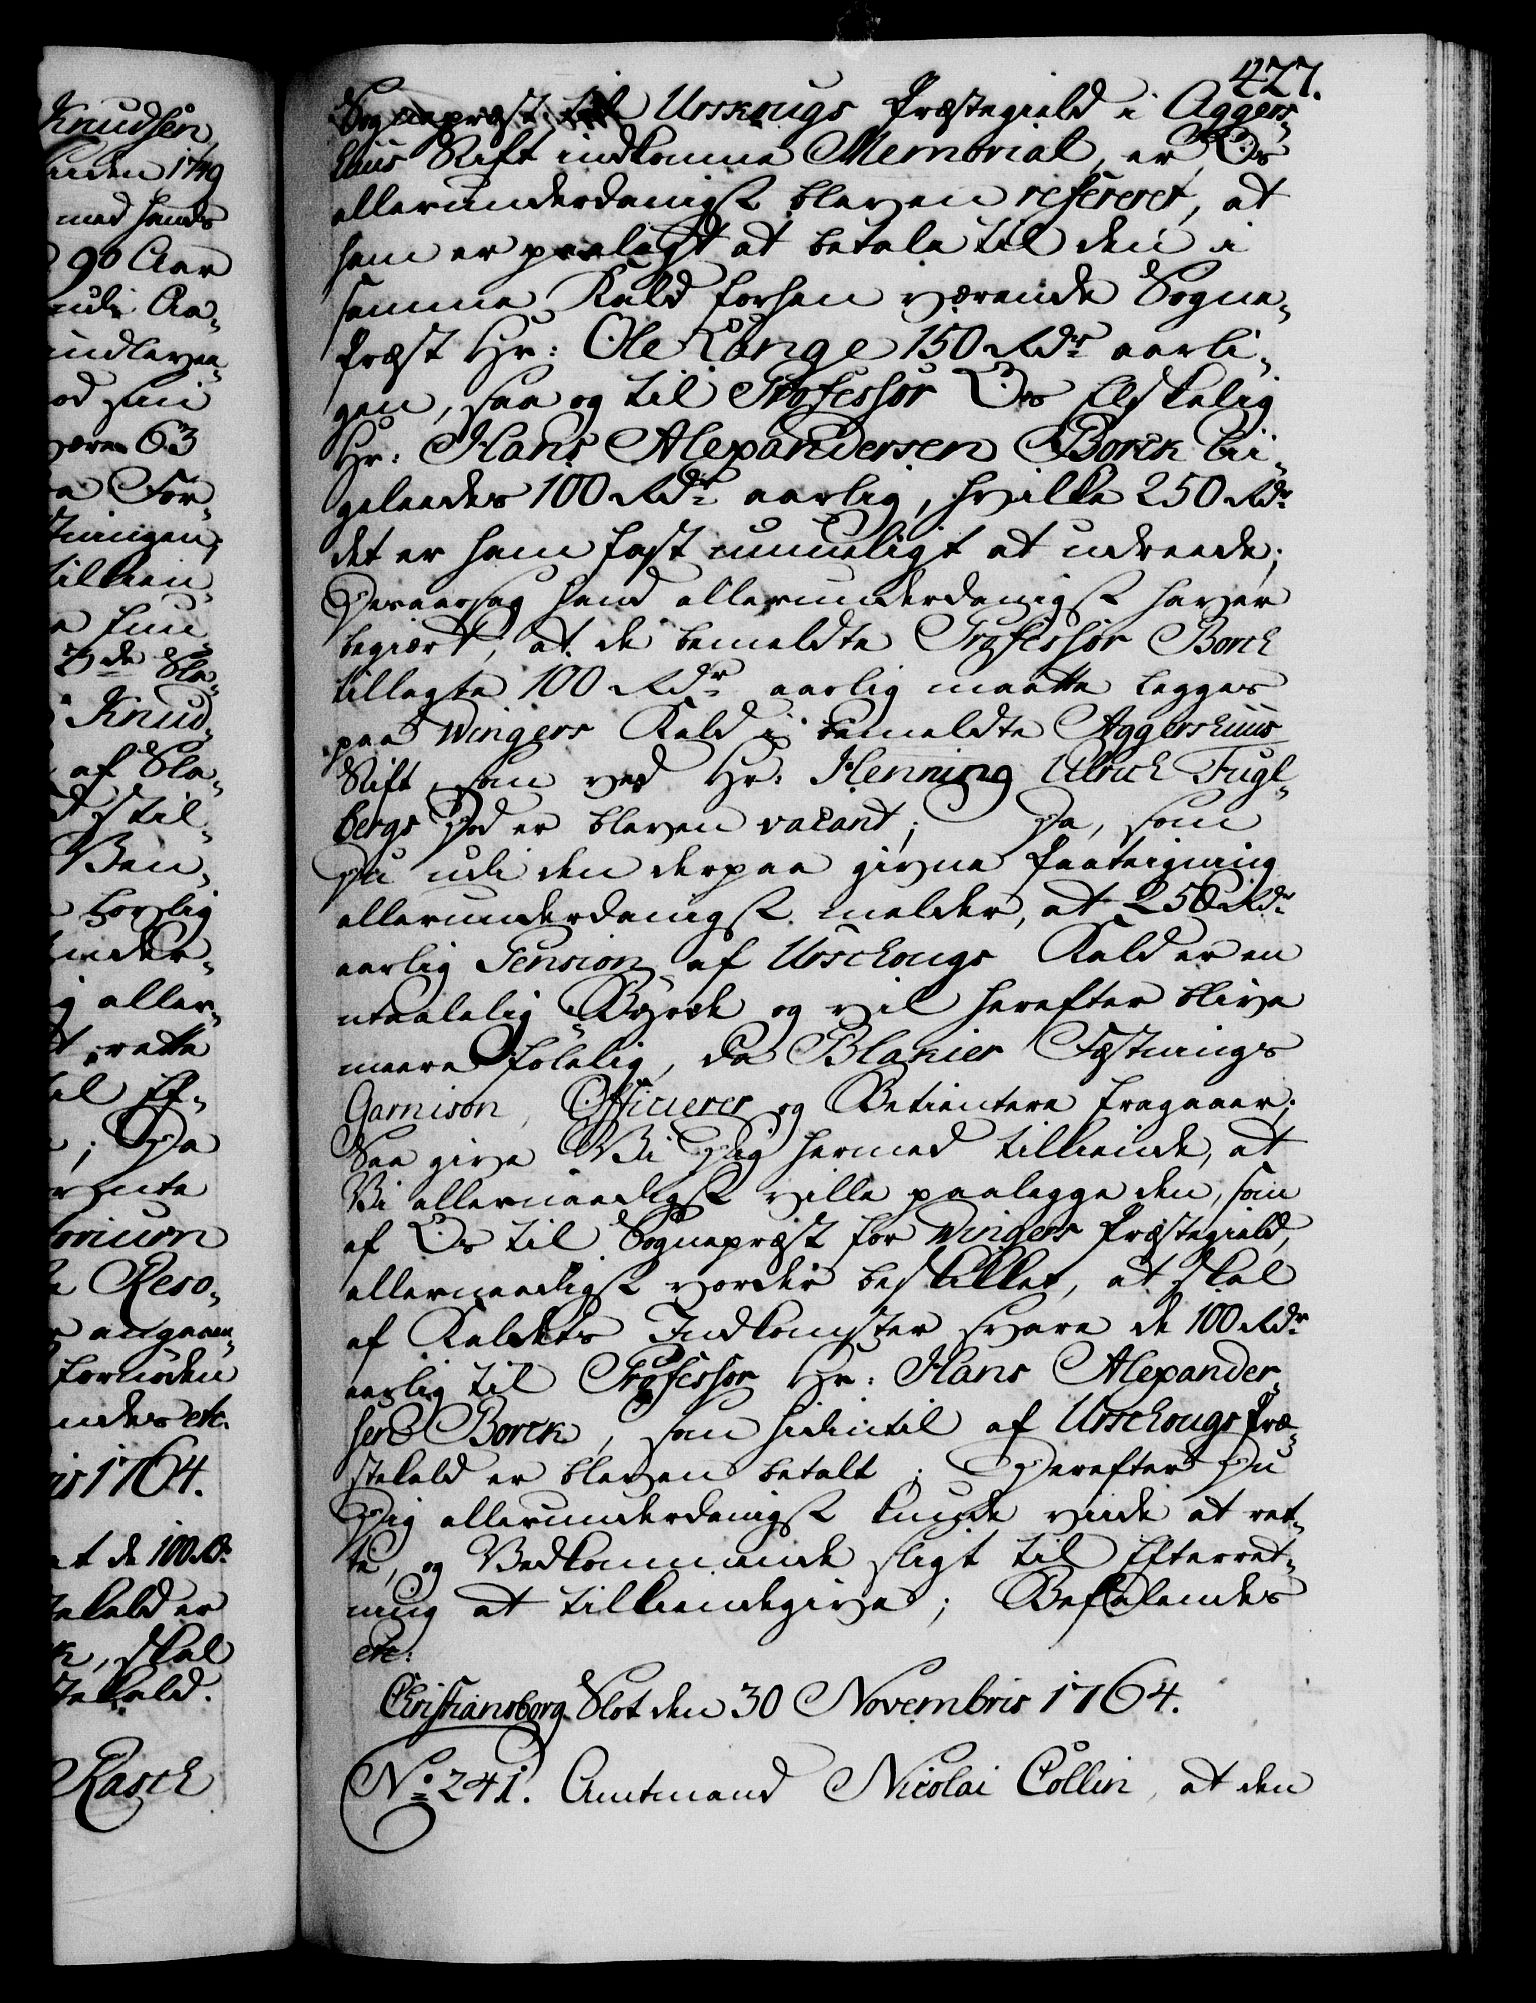 427.
Sognepræst til Urskougs Præstegield i Aggers-
huus Stift indkomne Memorial, er Os
allerunderdanigst bleven refereret, at
ham er paalagt at betale til den i
samme Kald forhen værende Sogne-
Præst Hr: Ole Lange 150 Rdr aarli-
gen, saa og til Professor Os Elskelig
Hr: Hans Alexandersen Borch lii-
geleedes 100 Rdr aarlig, hvilke 250 Rdr
det er ham fast umueligt at udreede;
Hvoraarsag hand allerunderdanigst haver
begiært, at de bemeldte Professor Borch
tillagte 100 Rdr aarlig maatte legges
paa Wingers Kald i bemeldte Aggershuus
Stift, som ved Hr: Henning Ulrich Fugl-
bergs Død er bleven vacant; Da, som
Du udi den derpaa givne Paateigning
allerunderdanigst melder, at 250 Rdr
aarlig Pension af Urschougs Kald er en
utaalelig Byrde og vil herefter blive
meere følelig, da Blakier Fæstnings
Garnison, Officierer og Betientere fragaaer;
Saa give Vi Dig hermed tilkiende, at
Vi allernaadigst ville paalegge den, som
af Os til Sognepræst for Wingers Præstegield,
allernaadigst vorder beskikket, at skal
af Kaldets Indkomster svare de 100 Rdr
aarlig til Professor Hr: Hans Alexander-
sen Borch, som hidintil af Urschougs Præ-
stekald er bleven betalt; Derefter Du
Dig allerunderdanigst kunde viide at ret-
te, og Vedkommende sligt til Efterret-
ning at tilkiendegive; Befalendes
etc:
Christiansborg Slot den 30 Novembris 1764.
No 241. Amtmand Nicolai Collin, at den
Knudsen
siden 1749
med hands
90 Aar
63
Knud-
af Sla-
Ben-
aller-
Da
Reso-
angaaen-
fornøden
etc.
1764.
at de 100 Rdr
kald er
skal
Rasch